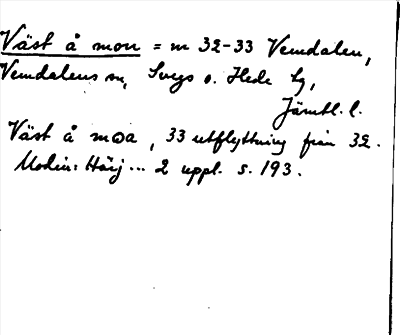 Väst å mon = m 32-33 Vemdalen,
Vemdalens sn, Svegs o. Hede tg,
Jämtl. l.
Väst å moa, 33 utflyttning från 32.
Modin: Härj... 2 uppl. s. 193.